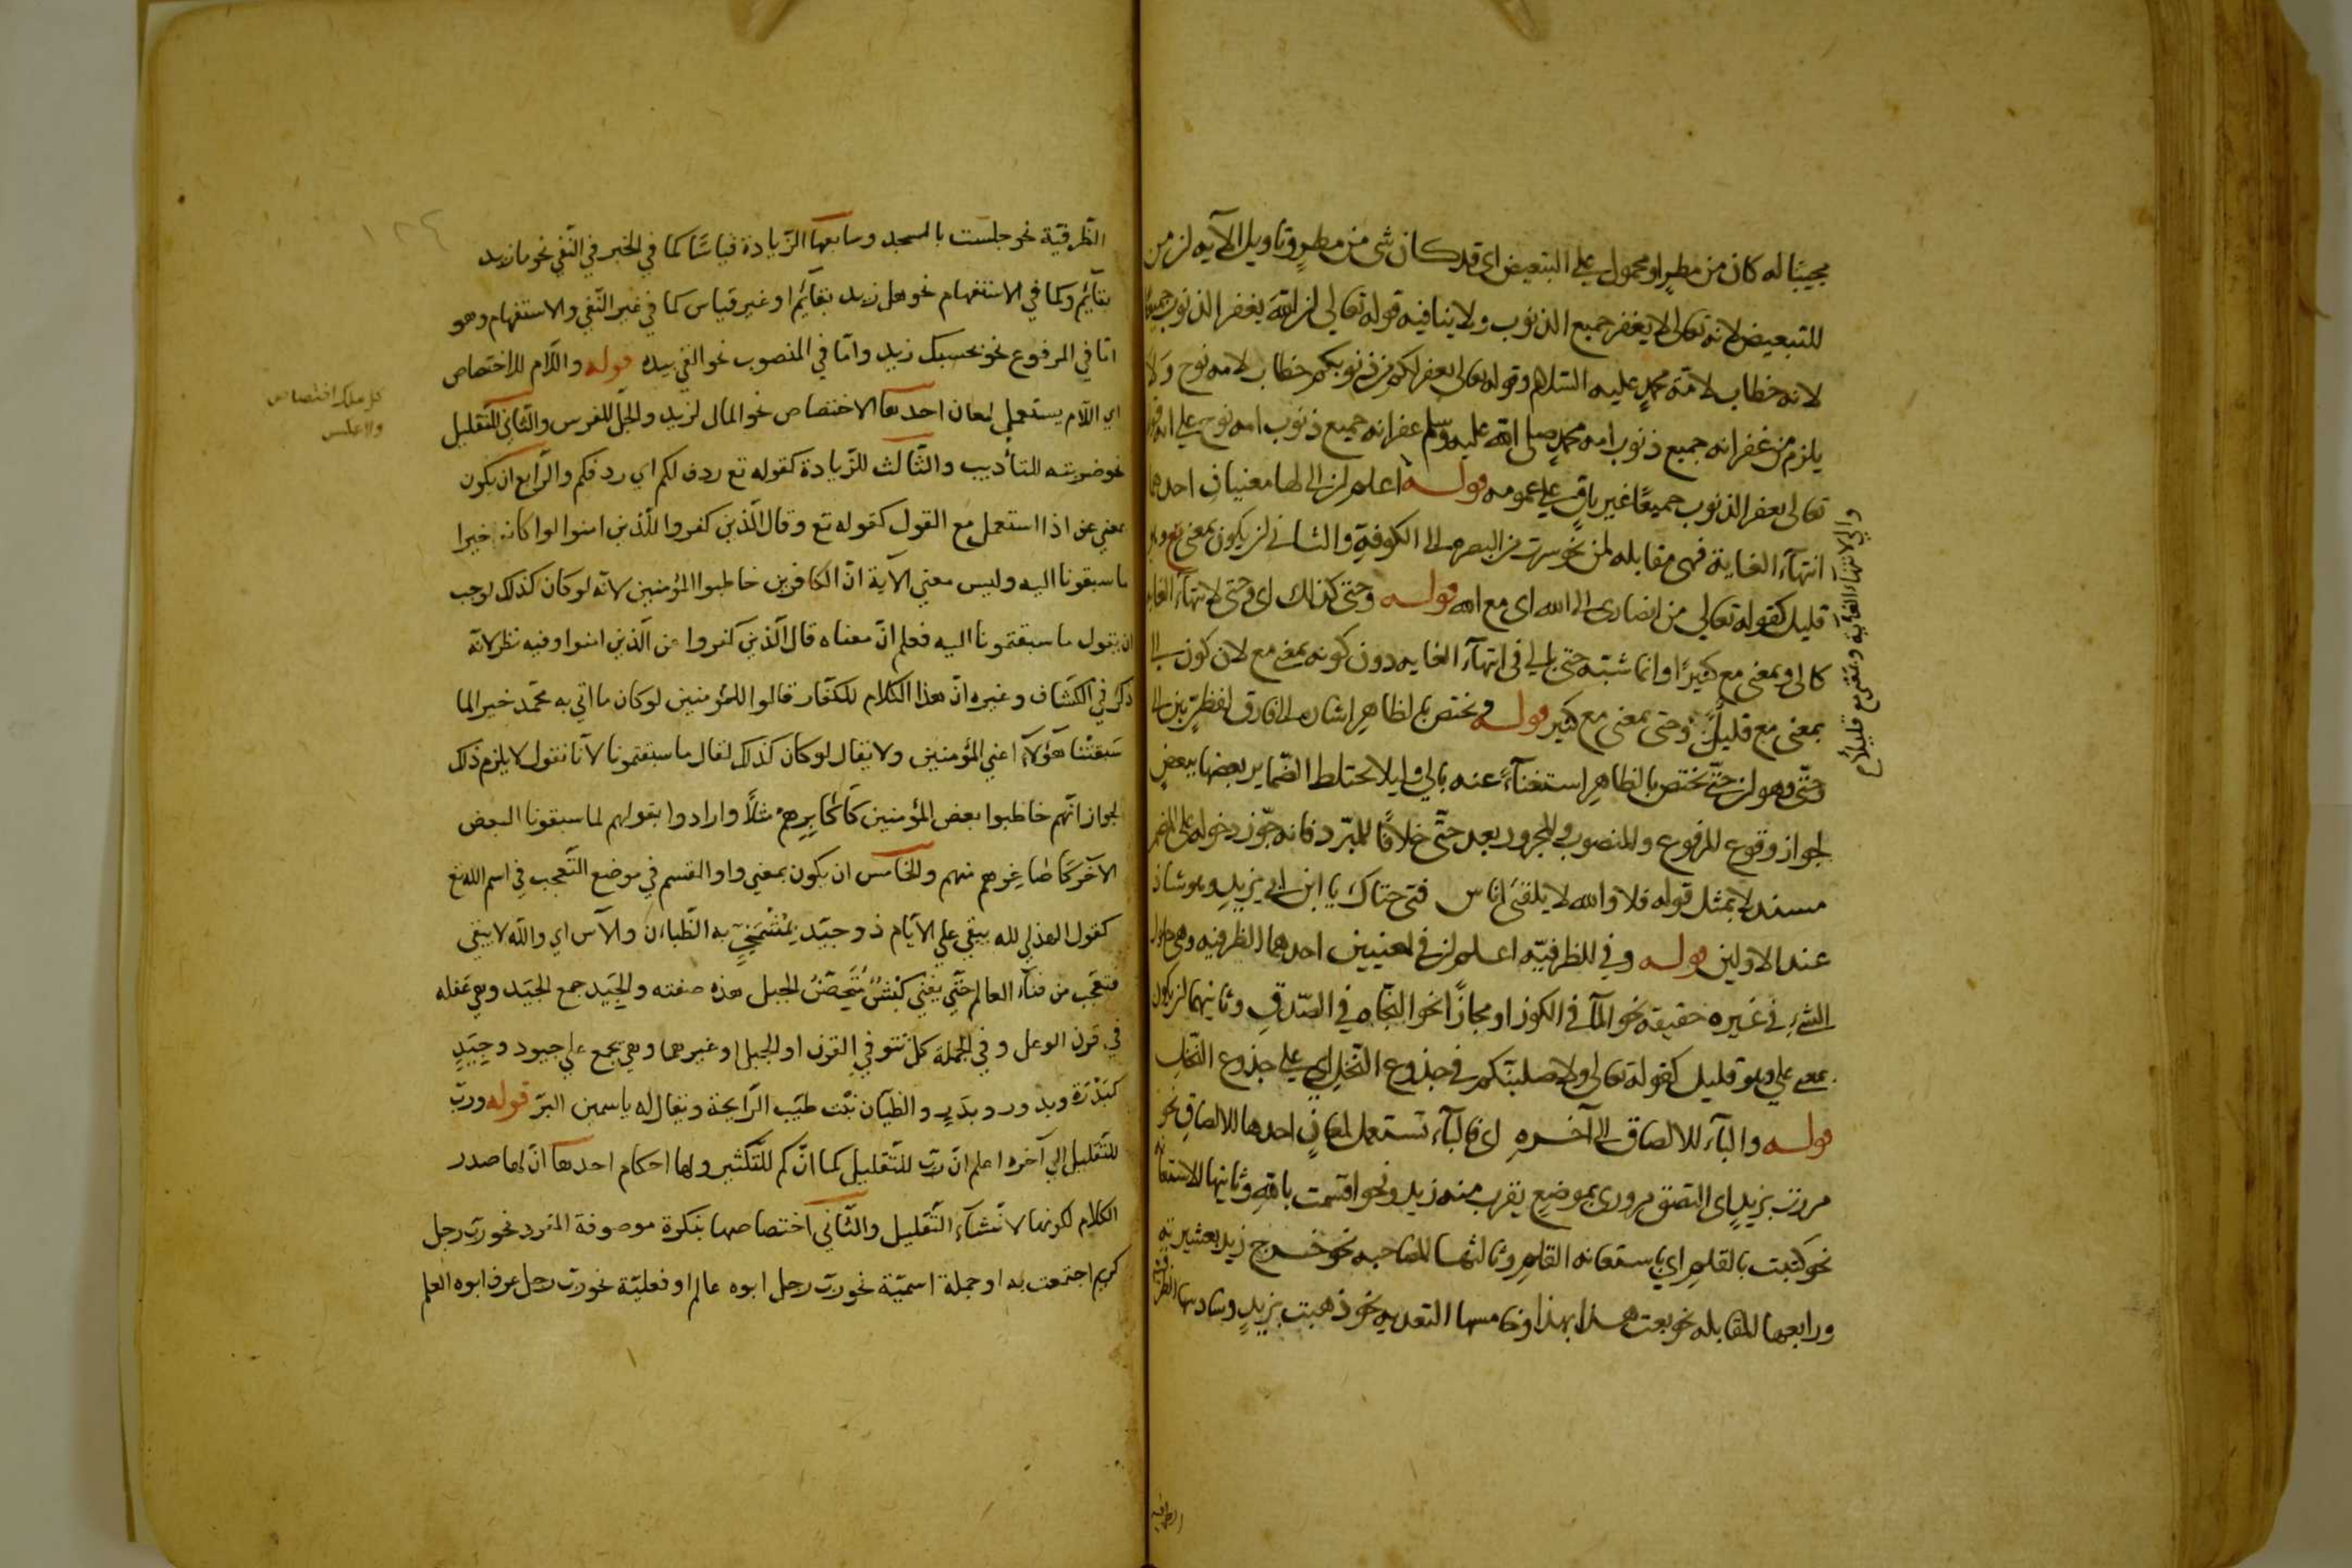 مجيبًا له كان من مطرٍ او محمول على التبعيض اى قد كان شى من مطرٍ وتاويل الآيه لز من
للتبعيض لانه تعالى لا يغفر جميع الذنوب ولا ينافيه قوله تعالى لز الله يغفر الذنوب جميعًا
لانه خطاب لامّة محمدٍ عليه السّلام وقوله تعالى يغفر لكم من ذنوبكم خطاب لامه نوح ولا
يلزم من غفرانه جميع ذنوب امه محمدٍ صلى الله عليه وسلم غفرانه جميع ذنوب امه نوح على ان
تعالى يغفر الذنوب جميعًا غير باقٍ على عمومه قوله اعلم لز الى لها معنيان احدهما
انتهآء الغاية فهى مقابله لمن نحو سرت من البصره الى الكوفةِ والثانى لز يكون بمعنى مع وهو
قليل كقوله تعالى من انصارى الى الله اى مع الله قوله وحتى كذلك اى وحتى لانتهآء الغايه
كالى وبمعنى مع كثيرًا وانما شبّه حتى بالى فى انتهآء الغايه دون كونه بمعنى مع لان كون الى
بمعنى مع قليلٌ وحتى بمعنى مع كثير قوله ويختص بالظاهر اشاره الى فارق لفظىّ بين الى
وحتّى وهو لز حتّى تختص بالظاهرِ استغنآءً عنه بالى وليلا يختلط الضّماير بعضها ببعضٍ
لجواز وقوع المرفوع والمنصوب والمجرور بعد حتّى خلافًا للمبّرد فانه جوّز دخوله على المضمر
مستدلا بمثل قوله فلا والله لا يلفى اناس فتى حتاك يا ابن ابى يزيدٍ وهو شاذ
عند الاولين قوله وفى للظرفيّه اعلم لز فى لمعنيين احدهما الظرفيه وهى حلول
الشىءِ فى غيره حقيقه نحو المآ فى الكوز او مجازًا نحو النجاه فى الصّدقِ وثانيهما لز يكون
بمعنى على وهو قليل كقوله تعالى ولاصلبنّكم فى جذوع النّخلِ اى على جذوع النّخل
قوله والبآء للالصاق الى آخرهِ اى البآء تستعمل لمعانٍ احدها للالصاقِ نحو
مررت بزيدٍ اى التصق مرورى بموضعٍ يقرب منه زيد ونحو اقسمت باللهِ وثانيها للاستعانه
نحو كتبت بالقلمِ اى باستعانه القلمِ وثالثها للمصاحبه نحو خرج زيد بعشيرته
ورابعها للمقابله نحو بعت هذا بهذا وخامسها التعديه نحو ذهبت بزيدٍ وسادسها الظرفية
والى لانتهاء الغايه وبمعنى مع قليلًا
الظرفية
١٢٤
الظّرفيّة نحو جلست بالمسجد وسابعها الزّيادة قياسًا كما في الخبر في النّفي نحو ما زيد
بقآئمٍ وكما في الاستفهام نحو هل زيد بقآئمٍ او غير قياس كما في غير النّفي والاستفهام وهو
امّا في المرفوع نحو بحسبك زيد وامّا في المنصوب نحو القي بيده قوله واللّام للاختصاص
اي اللّام يستعمل لمعان احدها الاختصاص نحو المال لزيد والجلّ للفرس والثّاني للتّعليل
نحو ضربته للتأديب والثّالث للزّيادة كقوله تع ردف لكم اي ردفكم والرّابع ان يكون
بمعني عن اذا استعمل مع القول كقوله تع وقال الّذين كفروا للّذين امنوا لوا كان خيرا
ما سبقونا اليه وليس معني الآية انّ الكافرين خاطبوا المؤمنين لانّه لو كان كذلك لوجب
ان يقول ما سبقتمونا اليه فعلم انّ معناه قال الّذين كفروا عن الّذين امنوا وفيه نظر لانّه
ذكر في الكشّاف وغيره انّ هذا الكلام للكفّار قالوا للمؤمنين لو كان ما اتي به محمّد خيرا لما
سَبقتْنا هؤلآء اعني المؤمنين ولا يقال لو كان كذلك لقال ما سبقتمونا لأنّا نقول لا يلزم ذلك
لجواز انّهم خاطبوا بعض المؤمنين كأكابِرِهِمْ مثلًا وارادوا بقولهم لما سبقونا البعض
الآخر كأصاغرهم منهم والخامس ان يكون بمعني واو القسم في موضع التّعجب في اسم الله تع
كقول الهذلي لله يبقي علي الأيّام ذو حِيَد بِمُشْمَخِرٍّ به الظّيان والآس اي والله لا يبقي
فتعجّب من فنآء العالم حتّي يفني كبشٌ يتحصّن الجبل هذه صفته والحِيَد جمع الحَيْد وهي عقده
في قرن الوعل وفي الجملة كلّ نتو في القرن او الجبل او غيرهما وهي يجمع علي حيود وحِيَدٍ
كبَدْرَة وبدور وبِدَرٍ والظيّان نبت طيّب الرّايحة ويقال له ياسمين البرّ قوله وربّ
للتّقليل الي آخره اعلم انّ ربّ للتّقليل كما انّ كم للتّكثير ولها احكام احدها انّ لها صدر
الكلام لكونها لانشآء التّقليل والثّاني اختصاصها بنكرة موصوفة المفرد نحو ربّ رجل
كريم اجتمعت به او جملة اسميّة نحو ربّ رجل ابوه عالم او فعليّة نحو ربّ رجل عرف ابوه العلم
كل ملك اختصاص
ولا عكس